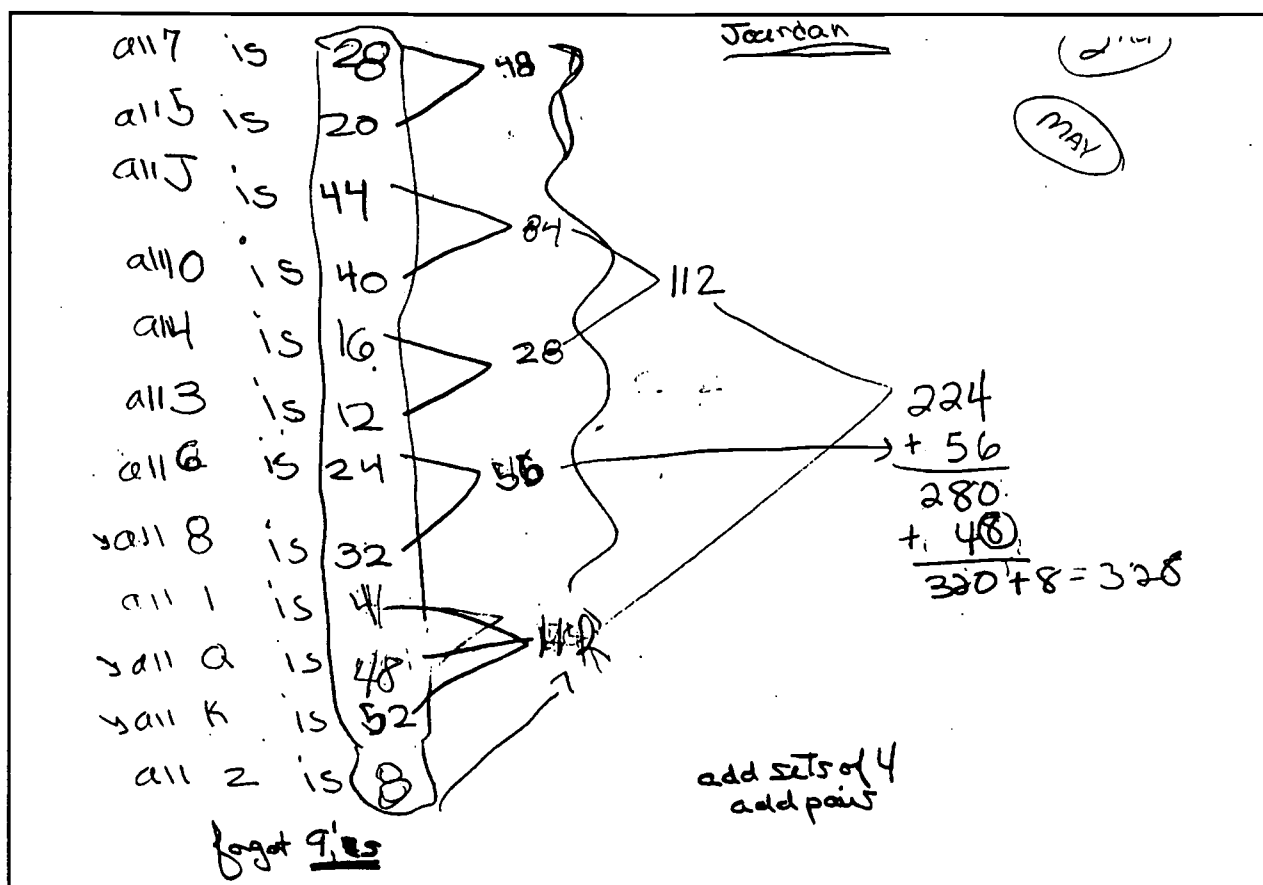 Jourdan
2nd
MAY
all 7 is 28
48
all 5 is 20
all J is 44
84
all 10 is 40
112
all 4 is 16
28
all 3 is 12
all 6 is 24
56
all 8 is 32
all 1 is 4
all Q is 48
all K is 52
all 2 is 8
224
+ 56
280
+ 48
320 + 8 = 328
add sets of 4
add pairs
forgot 9's